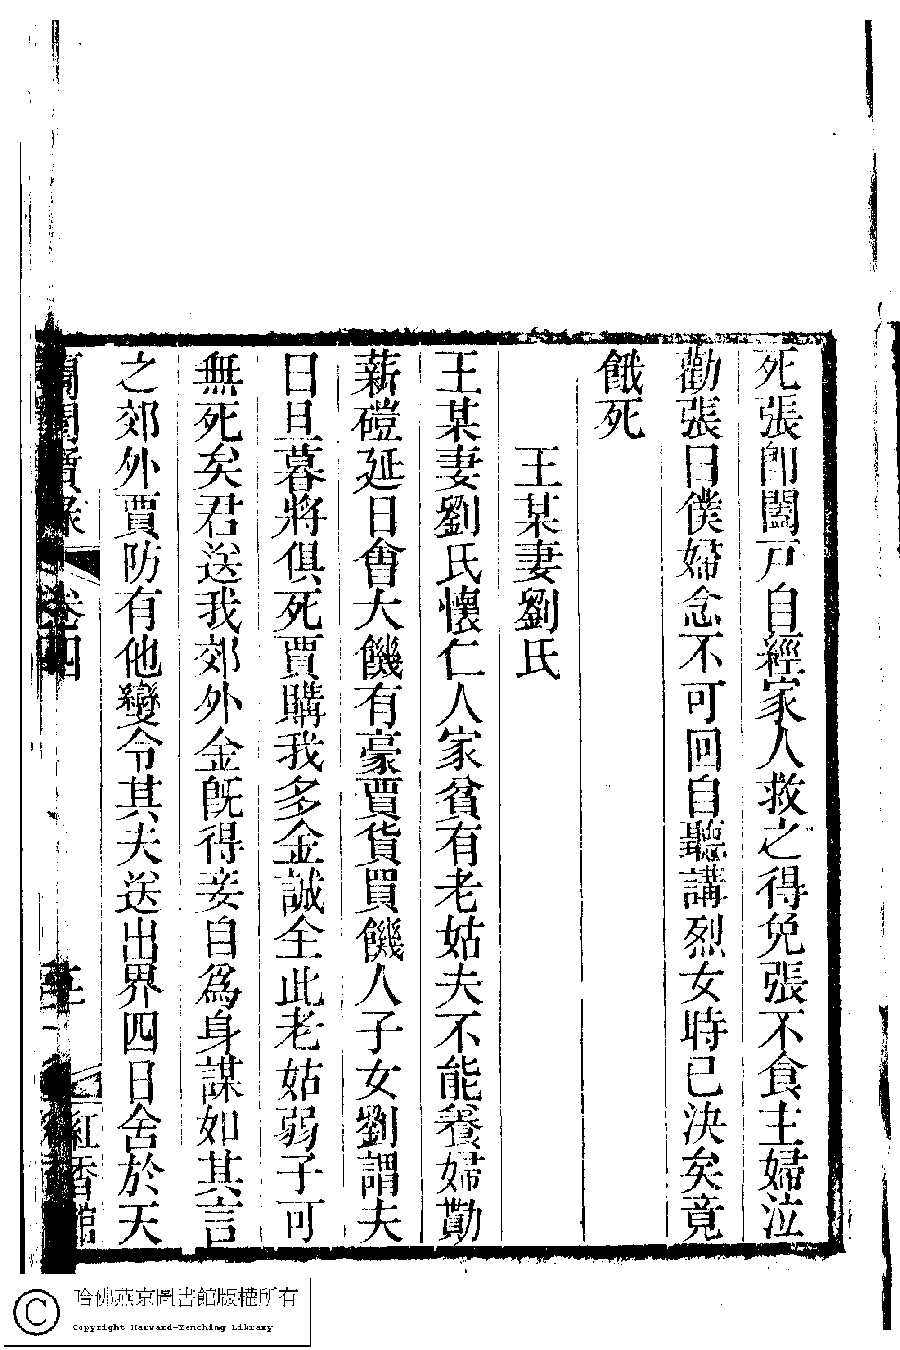 死張卽闔戸自經家人救之得免張不食主婦泣
勸張曰僕婦念不可回自聽講烈女時已決矣竟
餓死
王某妻劉氏
王某妻劉氏懷仁人家貧有老姑夫不能養婦勤
薪磑延日會大饑有豪賈貨買饑人子女劉謂夫
曰旦暮將俱死賈購我多金誠全此老姑弱子可
無死矣君送我郊外金旣得妾自爲身謀如其言
之郊外賈防有他變令其夫送出界四日舍於天
蘭閨寶錄
卷四
紅香館
哈佛燕京圖書館版權所有
Copyright Harvard-Yenching Library